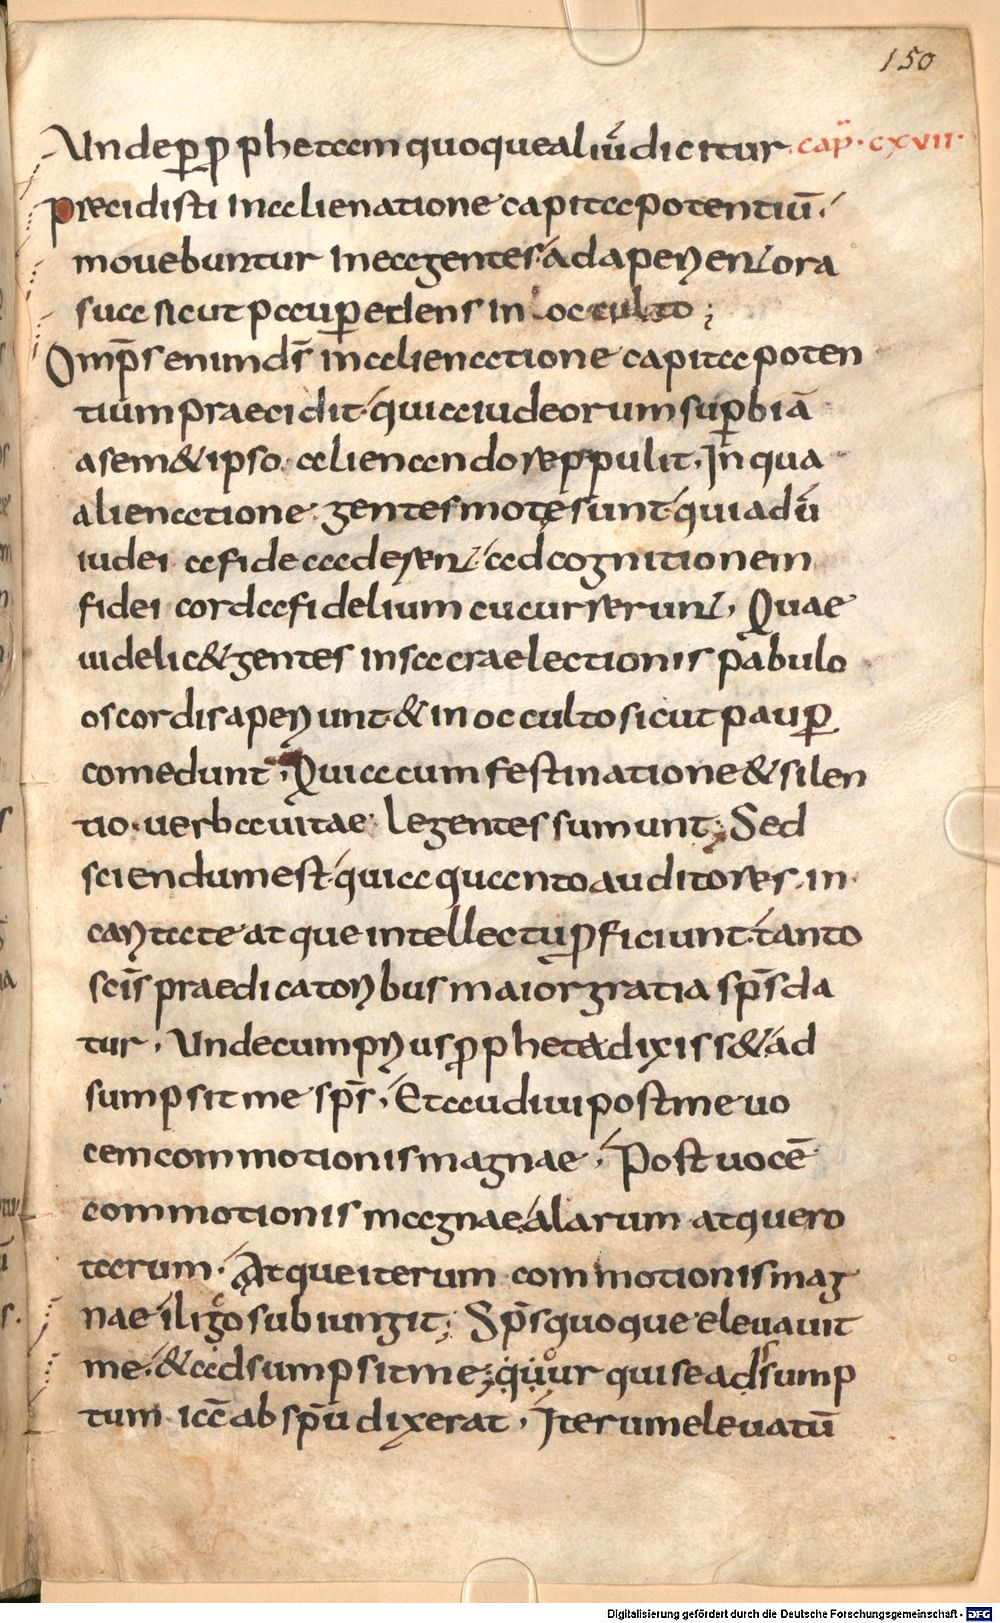 150
Unde ꝑ ꝓphetam quoque aliud dicitur cap̃. cxvii.
precidisti in alienatione capita potentiũ.
mouebuntur in ea gentes. adaperient ora
sua sicut pauꝑ edens in occulto;
Omp̄s enim d̄s in alienatione capita poten
tium praecidit. quia iudeorum suꝑbiā
a semet ipso alienando reppulit. In qua
alienatione gentes motę sunt. quia dū
iudei a fide caderent. ad cognitionem
fidei corda fidelium cucurrerunt. Quae
uidelic& gentes in sacrae lectionis pabulo
os cordis aperiunt. & in occulto sicut pauꝑ
comedunt. Quia cum festinatione & silen
tio. uerba uitae legentes sumunt; Sed
sciendum est. quia quanto auditores in
caritate atque intellectu ꝓficiunt. tanto
sc̄is praedicatoribus maior gratia sp̄s da
tur. Unde cum prius ꝓpheta dixiss&. ad
sumpsit me sp̄s. Et audiui post me uo
cem commotionis magnae. Post uocē
commotionis magnae. alarum atque ro
tarum. Atque iterum commotionis mag
nae. ilic̊o subiungit; Sp̄s quoque eleuauit
me. & adsumpsit me; quur qui se adsump
tum iā ab sp̄u dixerat. Iterum eleuatū
Digitalisierung gefördert durch die Deutsche Forschungsgemeinschaft - DFG